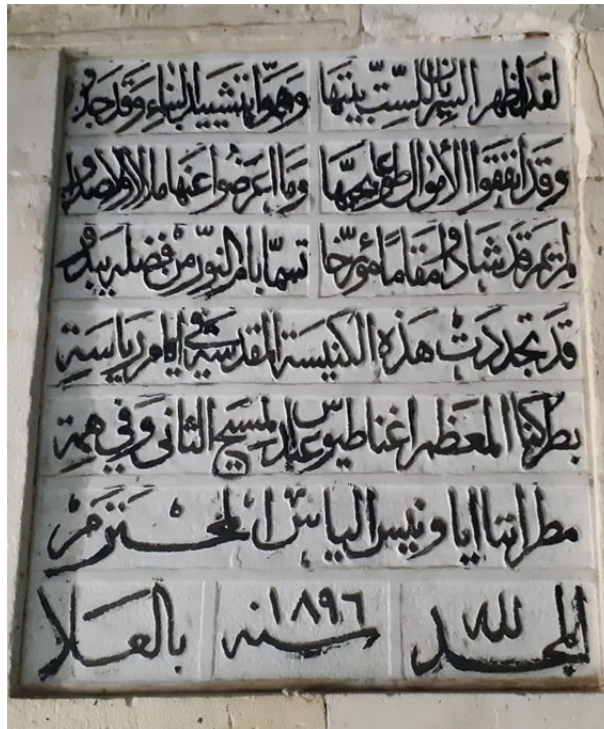 لقد اظهر السريان للست بيتها وهموا بتشييد البناء وقد جدوا
وقد انفقوا الأموال طوعا بحبها وما اعرضوا عنها ملالا ولا صدوا
لمريم قد شادوا مقاما مؤرخا تسما بام النور من فضله يبدو
قد تجددت هذه الكنيسة المقدسة في ايام رياسة
بطركنا المعظم اغناطيوس عبد المسيح الثاني وفي همة
مطراننا ايا ونيس الياس المحترم
المجد لله سنه ١٨٩٦ بالعلا